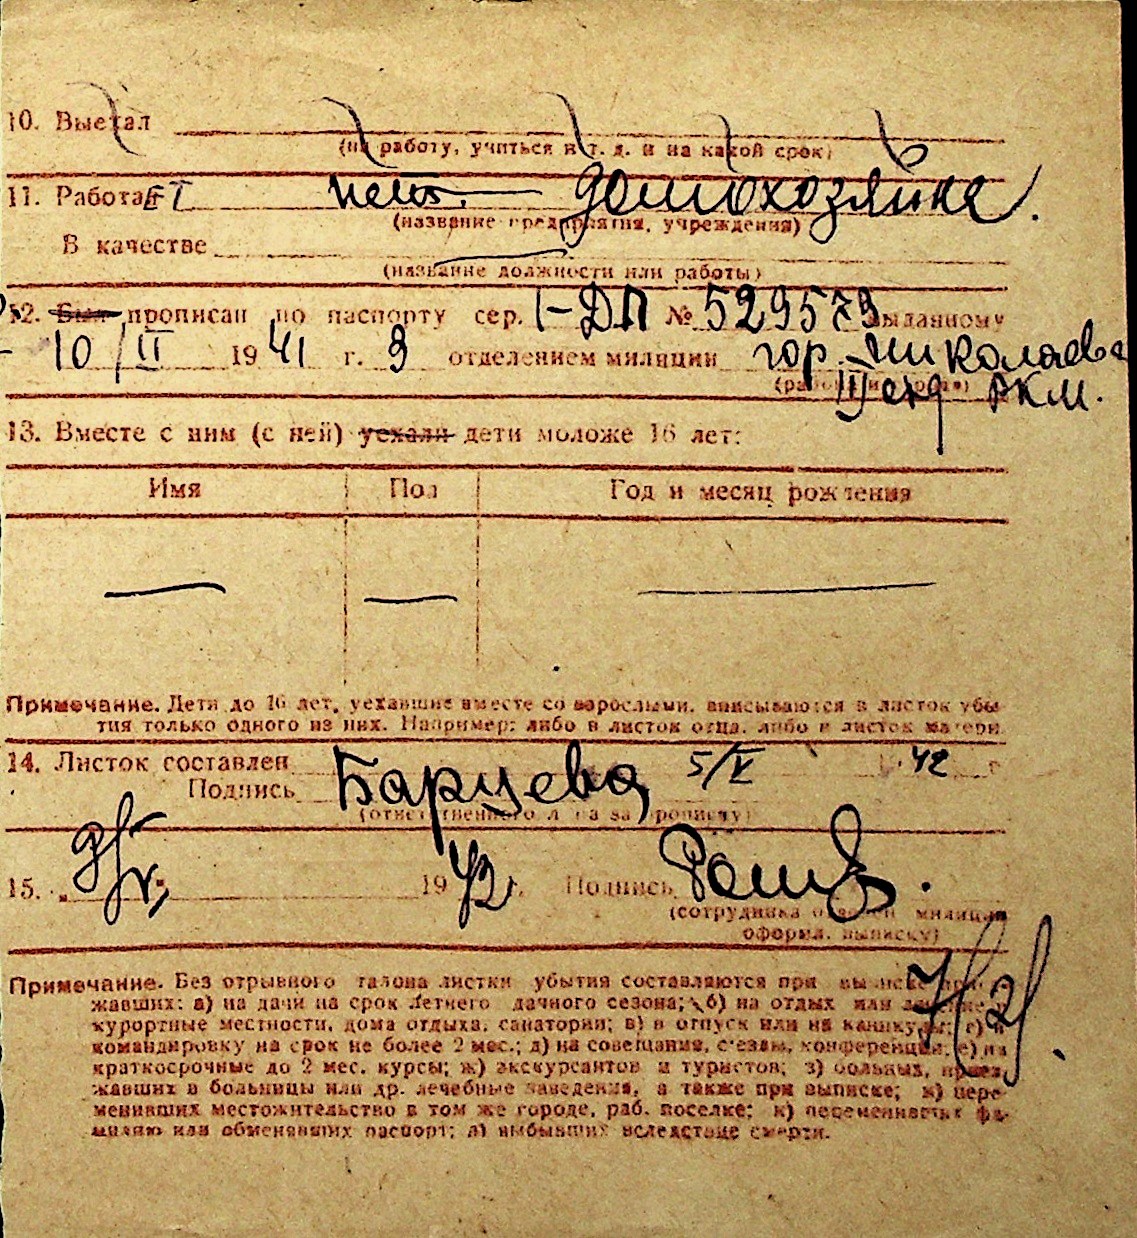 10. Выехал
(на работу, учиться и т. д. и на какой срок)
11. РаботаЕТ нет. — домохозяйка.
(название предприятия, учреждения)
В качестве —
(название должности или работы)
12. Был прописан по паспорту сер. I-ДП № 529579 выданному
10/II 1941 г. 3 отделением милиции гор. Николаева
III РКМ.
13. Вместе с ним (с ней) уехали дети моложе 16 лет:
Имя Пол Год и месяц рождения
— — —
Примечание. Дети до 16 лет, уехавшие вместе со взрослыми, вписываются в листок убы-
тия только одного из них. Например: либо в листок отца, либо в листок матери
14. Листок составлен 5/V 42 г
Подпись
(ответственного лица за прописку)
15. 1942 г. Подпись
(сотрудника отделен милиции
оформ. выписку)
Примечание. Без отрывного талона листки убытия составляются при выписке
жавших: а) на дачи на срок летнего дачного сезона; б) на отдых или лечение в
курортные местности, дома отдыха, санатории; в) в отпуск или на каникулы; г) в
командировку на срок не более 2 мес.; д) на совещания, съезды, конференции; е) на
краткосрочные до 2 мес. курсы; ж) экскурсантов и туристов; з) больных, приез
жавших в больницы или др. лечебные заведения, а также при выписке; и) пере-
менивших местожительство в том же городе, раб. поселке; к) переменивших фа-
милию или обменявших паспорт; л) выбывших вследствие смерти.